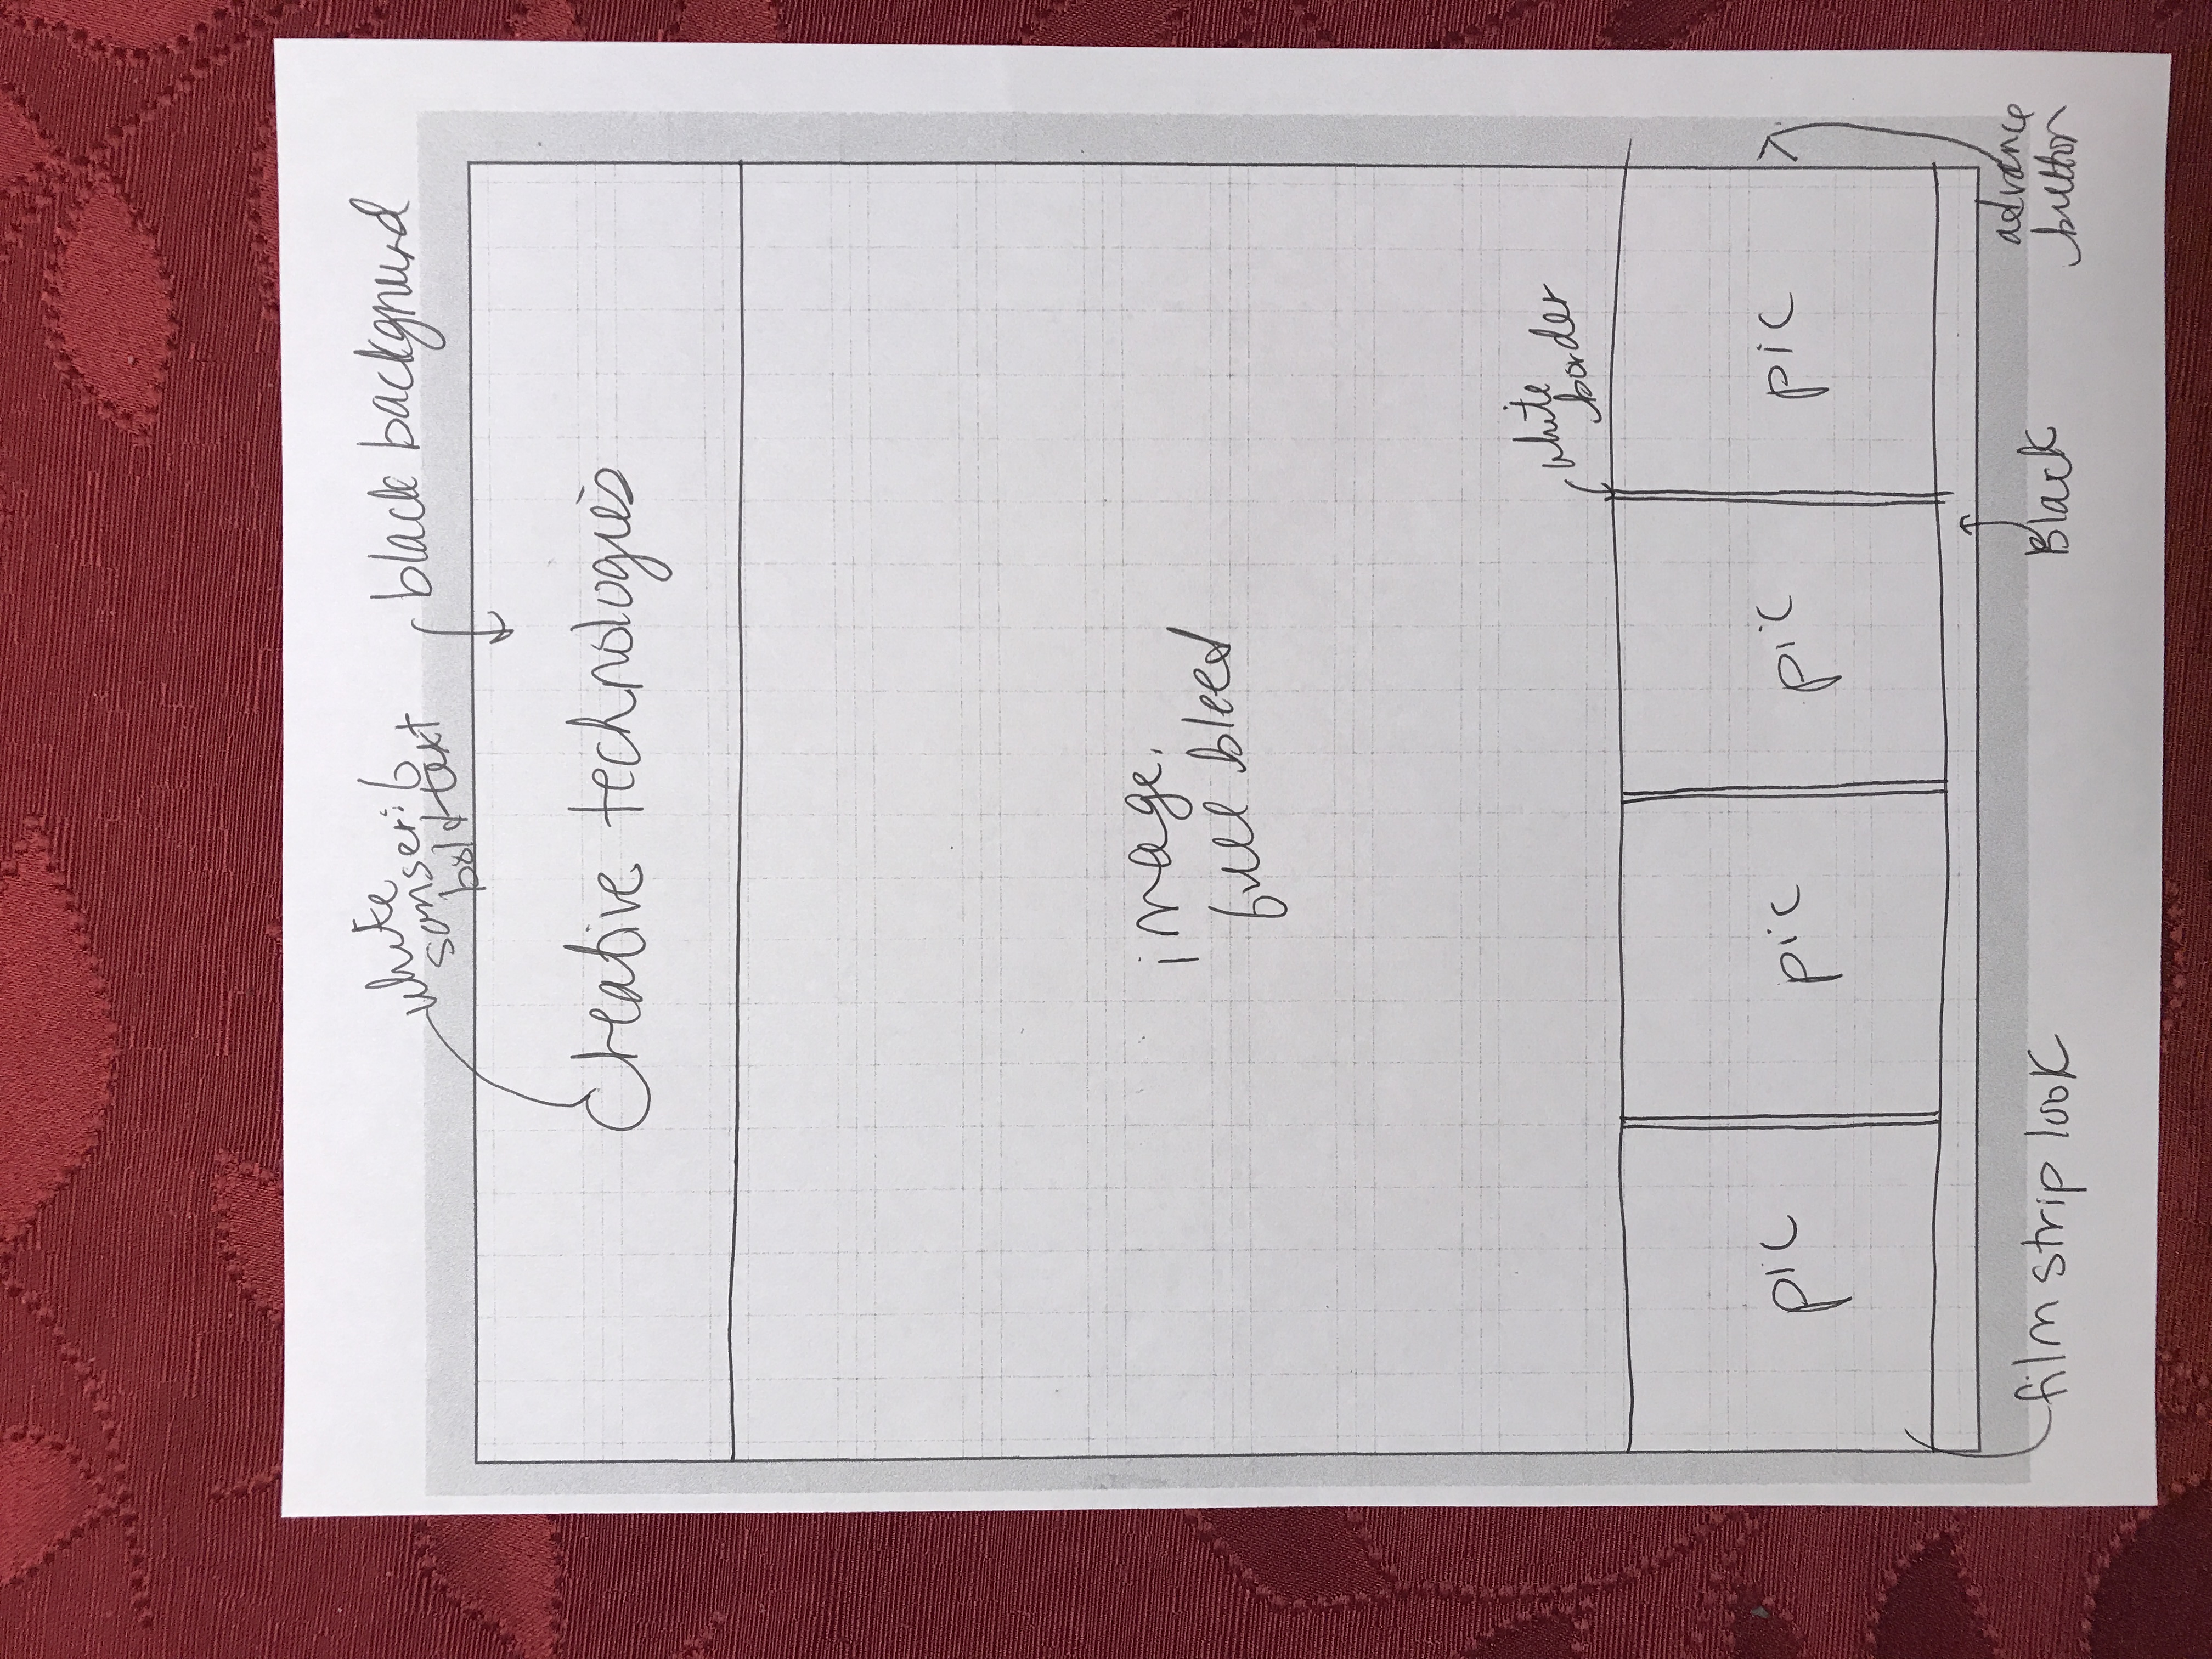 white
sanserif
bold text
black background
Creative technologies
image.
full bleed
white
border
pic
pic
pic
pic
>
film strip look
Black
advance
button